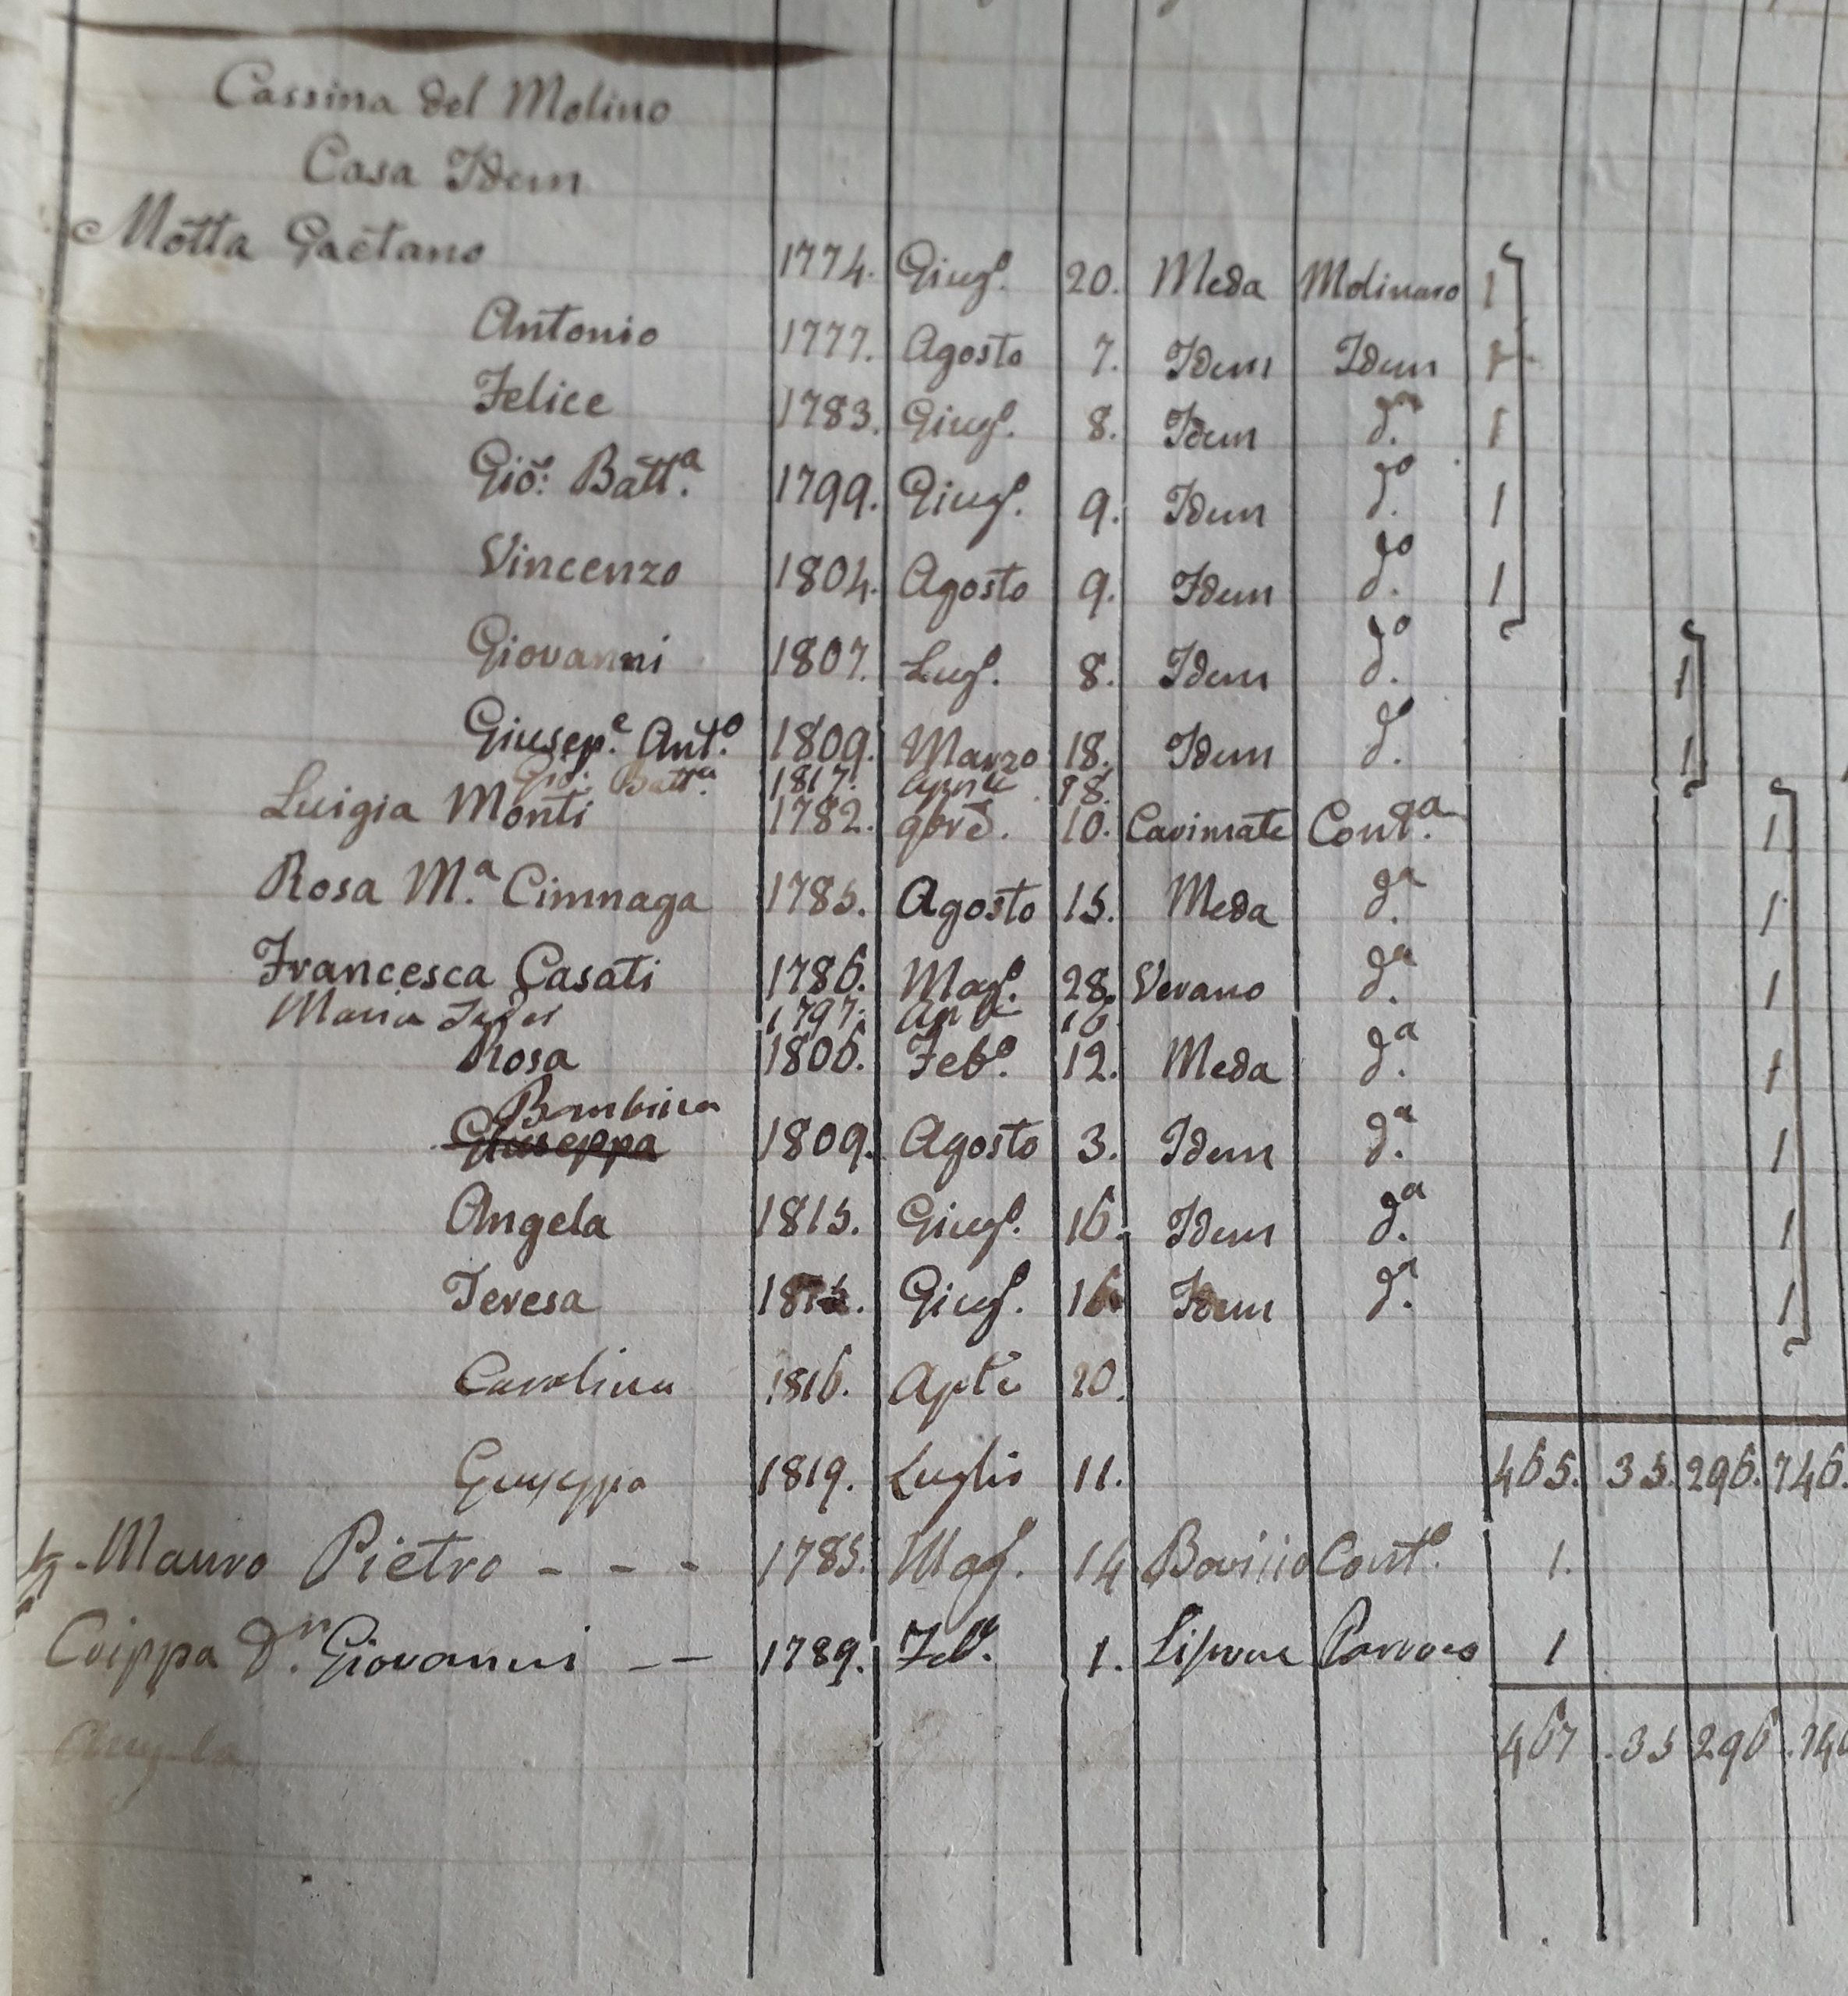 Cassina del Molino
Casa Idem
Motta Gaetano 1774. Giug.o 20. Meda Molinaro 1
Antonio 1777. Agosto 7. Idem Idem 1
Felice 1783. Giug.o 8. Idem d.o 1
Gio: Batt.a 1799. Giug.o 9. Idem d.o 1
Vincenzo 1804. Agosto 9. Idem d.o 1
Giovanni 1807. Lug.o 8. Idem d.o 1
Giusep.e Ant.o 1809. Marzo 18. Idem d.o 1
Gio: Batt.a 1817. Aprile 18.
Luigia Monti 1782. 9bre. 10. Carimate Cont.a 1
Rosa M.a Cimnaga 1785. Agosto 15. Meda d.a 1
Francesca Casati 1786. Mag.o 28. Verano d.a 1
Maria 1797.
Rosa 1806. Feb.o 12. Meda d.a 1
Bambina
Giuseppa 1809. Agosto 3. Idem d.a 1
Angela 1815. Giug.o 16. Idem d.a 1
Teresa Giug.o 16 Idem d.a 1
Carolina 1816. 20.
Giuseppa 1819. Luglio 11.
465. 35. 296. 746.
Mauro Pietro - - - 1785. Mag.o 14 Cont.o 1.
D.n Giovanni -- 1789. Feb.o 1. Lissone Parroco 1
Angela
467. 35 296. 746